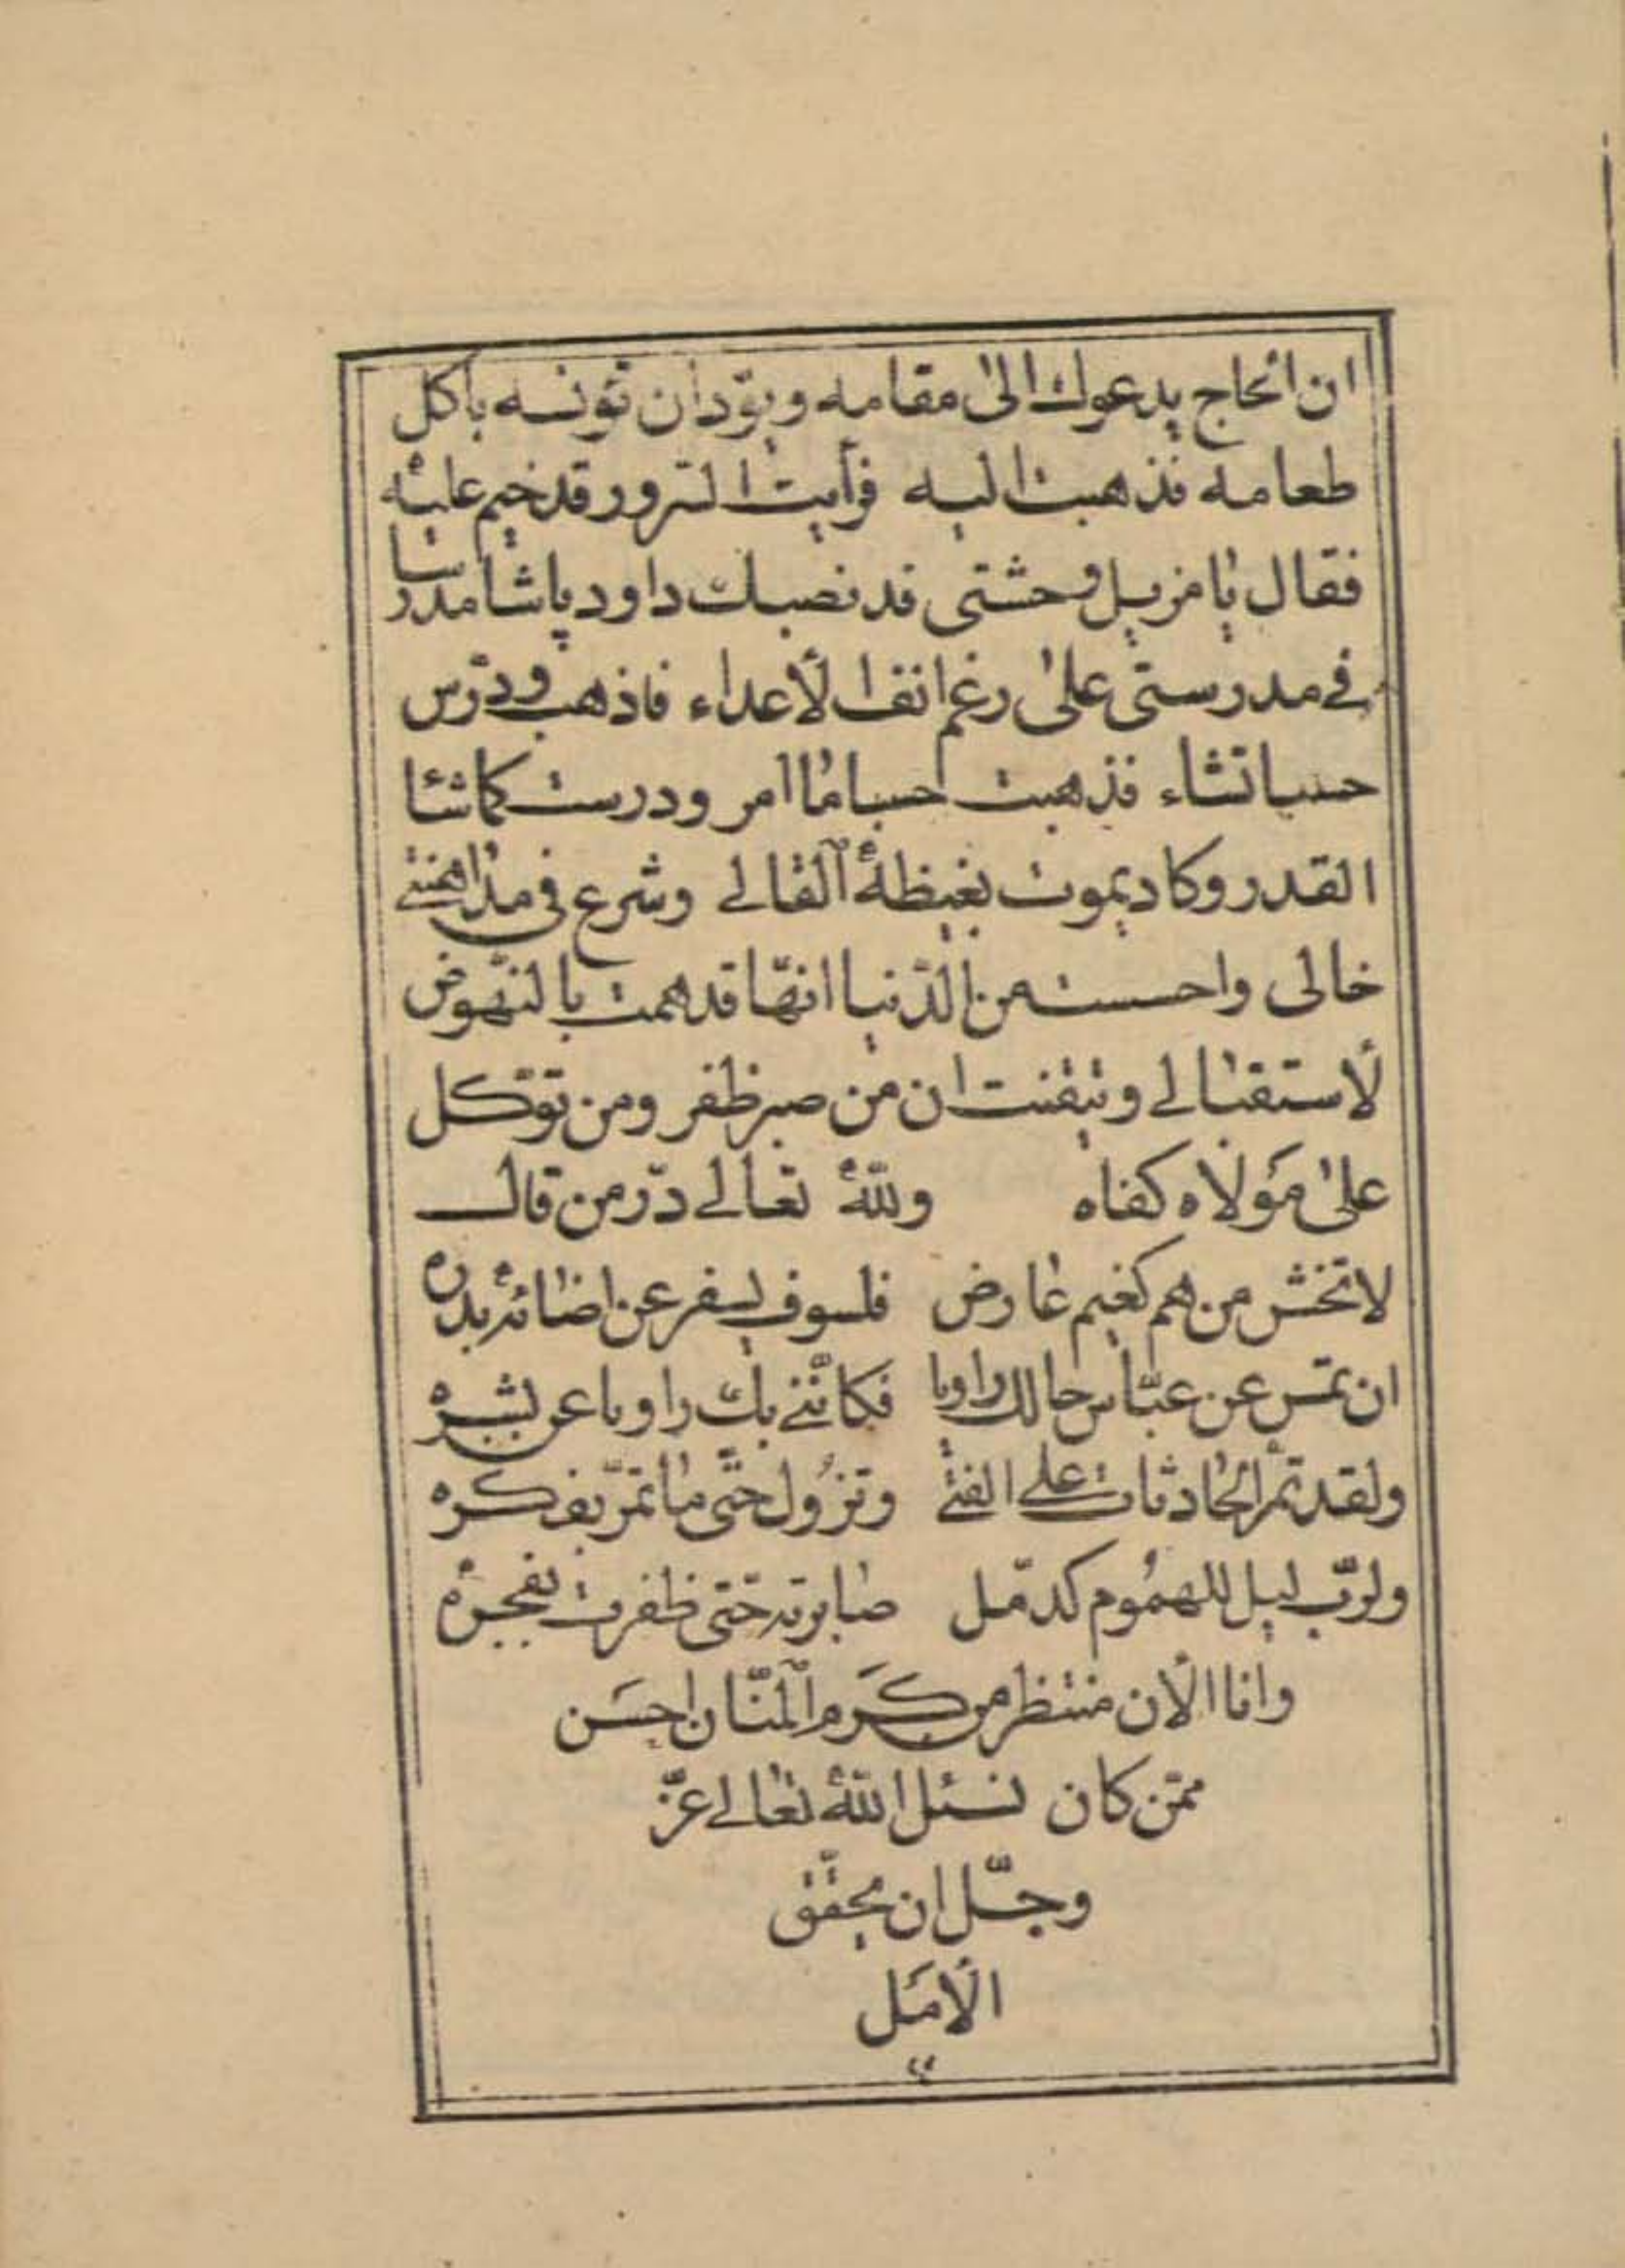 ان الحاج يدعوك الى مقامه ويودّ ان تونسه باكل
طعامه فذهبت اليه فرأيت السرور قد خيم عليه
فقال يا مزيل وحشتى قد نصبك داود پاشا مدرسا
فى مدرستى على رغم انف الأعداء فاذهب ودرّس
حسبما تشاء فذهبت حسبما امر ودرست كما شاء
القدر وكاد يموت بغيظه القالى وشرع فى مداهنتى
خالى واحسست من الدّنيا انّها قد همت بالنّهوض
لأستقبالى وتيقنت ان من صبر ظفر ومن توكل
على مَولاه كفاه ولله تعالى درّ من قال
لا تخش من هم كغيم عارض فلسوف يسفر عن اضائة بدره
ان تمس عن عبّاس حالك راويا فكأننى بك راويا عن بشره
ولقد تمر الحادثات على الفتى وتزول حتى ما تمرّ بفكره
ولربّ ليل للهموم كدمّل صابرته حتى ظفرت بفجره
وانا الأن منتظر من كَرم المنّان احسَن
ممّن كان نسئل الله تعالى عزّ
وجلّ ان يحقق
الأمَل